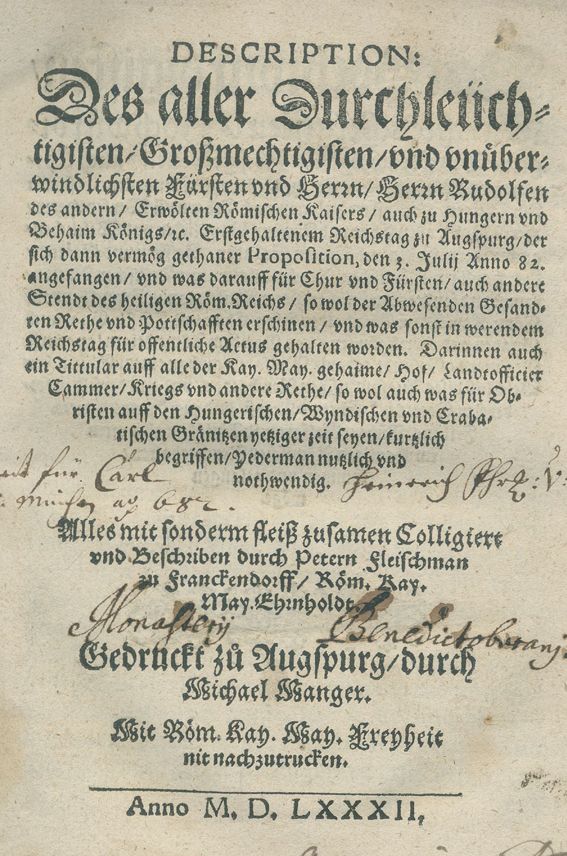 DESCRIPTION:
Des aller Durchleüch-
tigisten/Großmechtigisten/vnd vnüber-
windlichsten Fürsten vnd Herrn/ Herrn Rudolfen
des andern/ Erwölten Römischen Kaisers/ auch zu Hungern vnd
Behaim Königs/ꝛc. Erstgehaltenem Reichstag zu Augspurg/der
sich dann vermög gethaner Proposition, den 3. Julij Anno 82.
angefangen/ vnd was darauff für Chur vnd Fürsten/ auch andere
Stendt des heiligen Röm. Reichs/ so wol der Abwesenden Gesand-
ten Rethe vnd Pottschafften erschinen/ vnd was sonst in werendem
Reichstag für offentliche Actus gehalten worden. Darinnen auch
ein Tittular auff alle der Kay. May. gehaime/ Hof/ Landtofficier
Cammer/Kriegs vnd andere Rethe/ so wol auch was für Ob-
risten auff den Hungerischen/Wyndischen vnd Craba-
tischen Gränitzen yetziger zeit seyen/kurtzlich
begriffen/Yederman nutzlich vnd
nothwendig.
für Carl
Heinrich
Alles mit sonderm fleiß zusamen Colligiert
vnd Beschriben durch Petern Fleischman
zu Franckendorff/ Röm. Kay.
May. Ehrnholdt.
Monasterij Benedictoburanj
Gedruckt zů Augspurg/durch
Michael Manger.
Mit Röm. Kay. May. Freyheit
nit nachzutrucken.
Anno M. D. LXXXII.